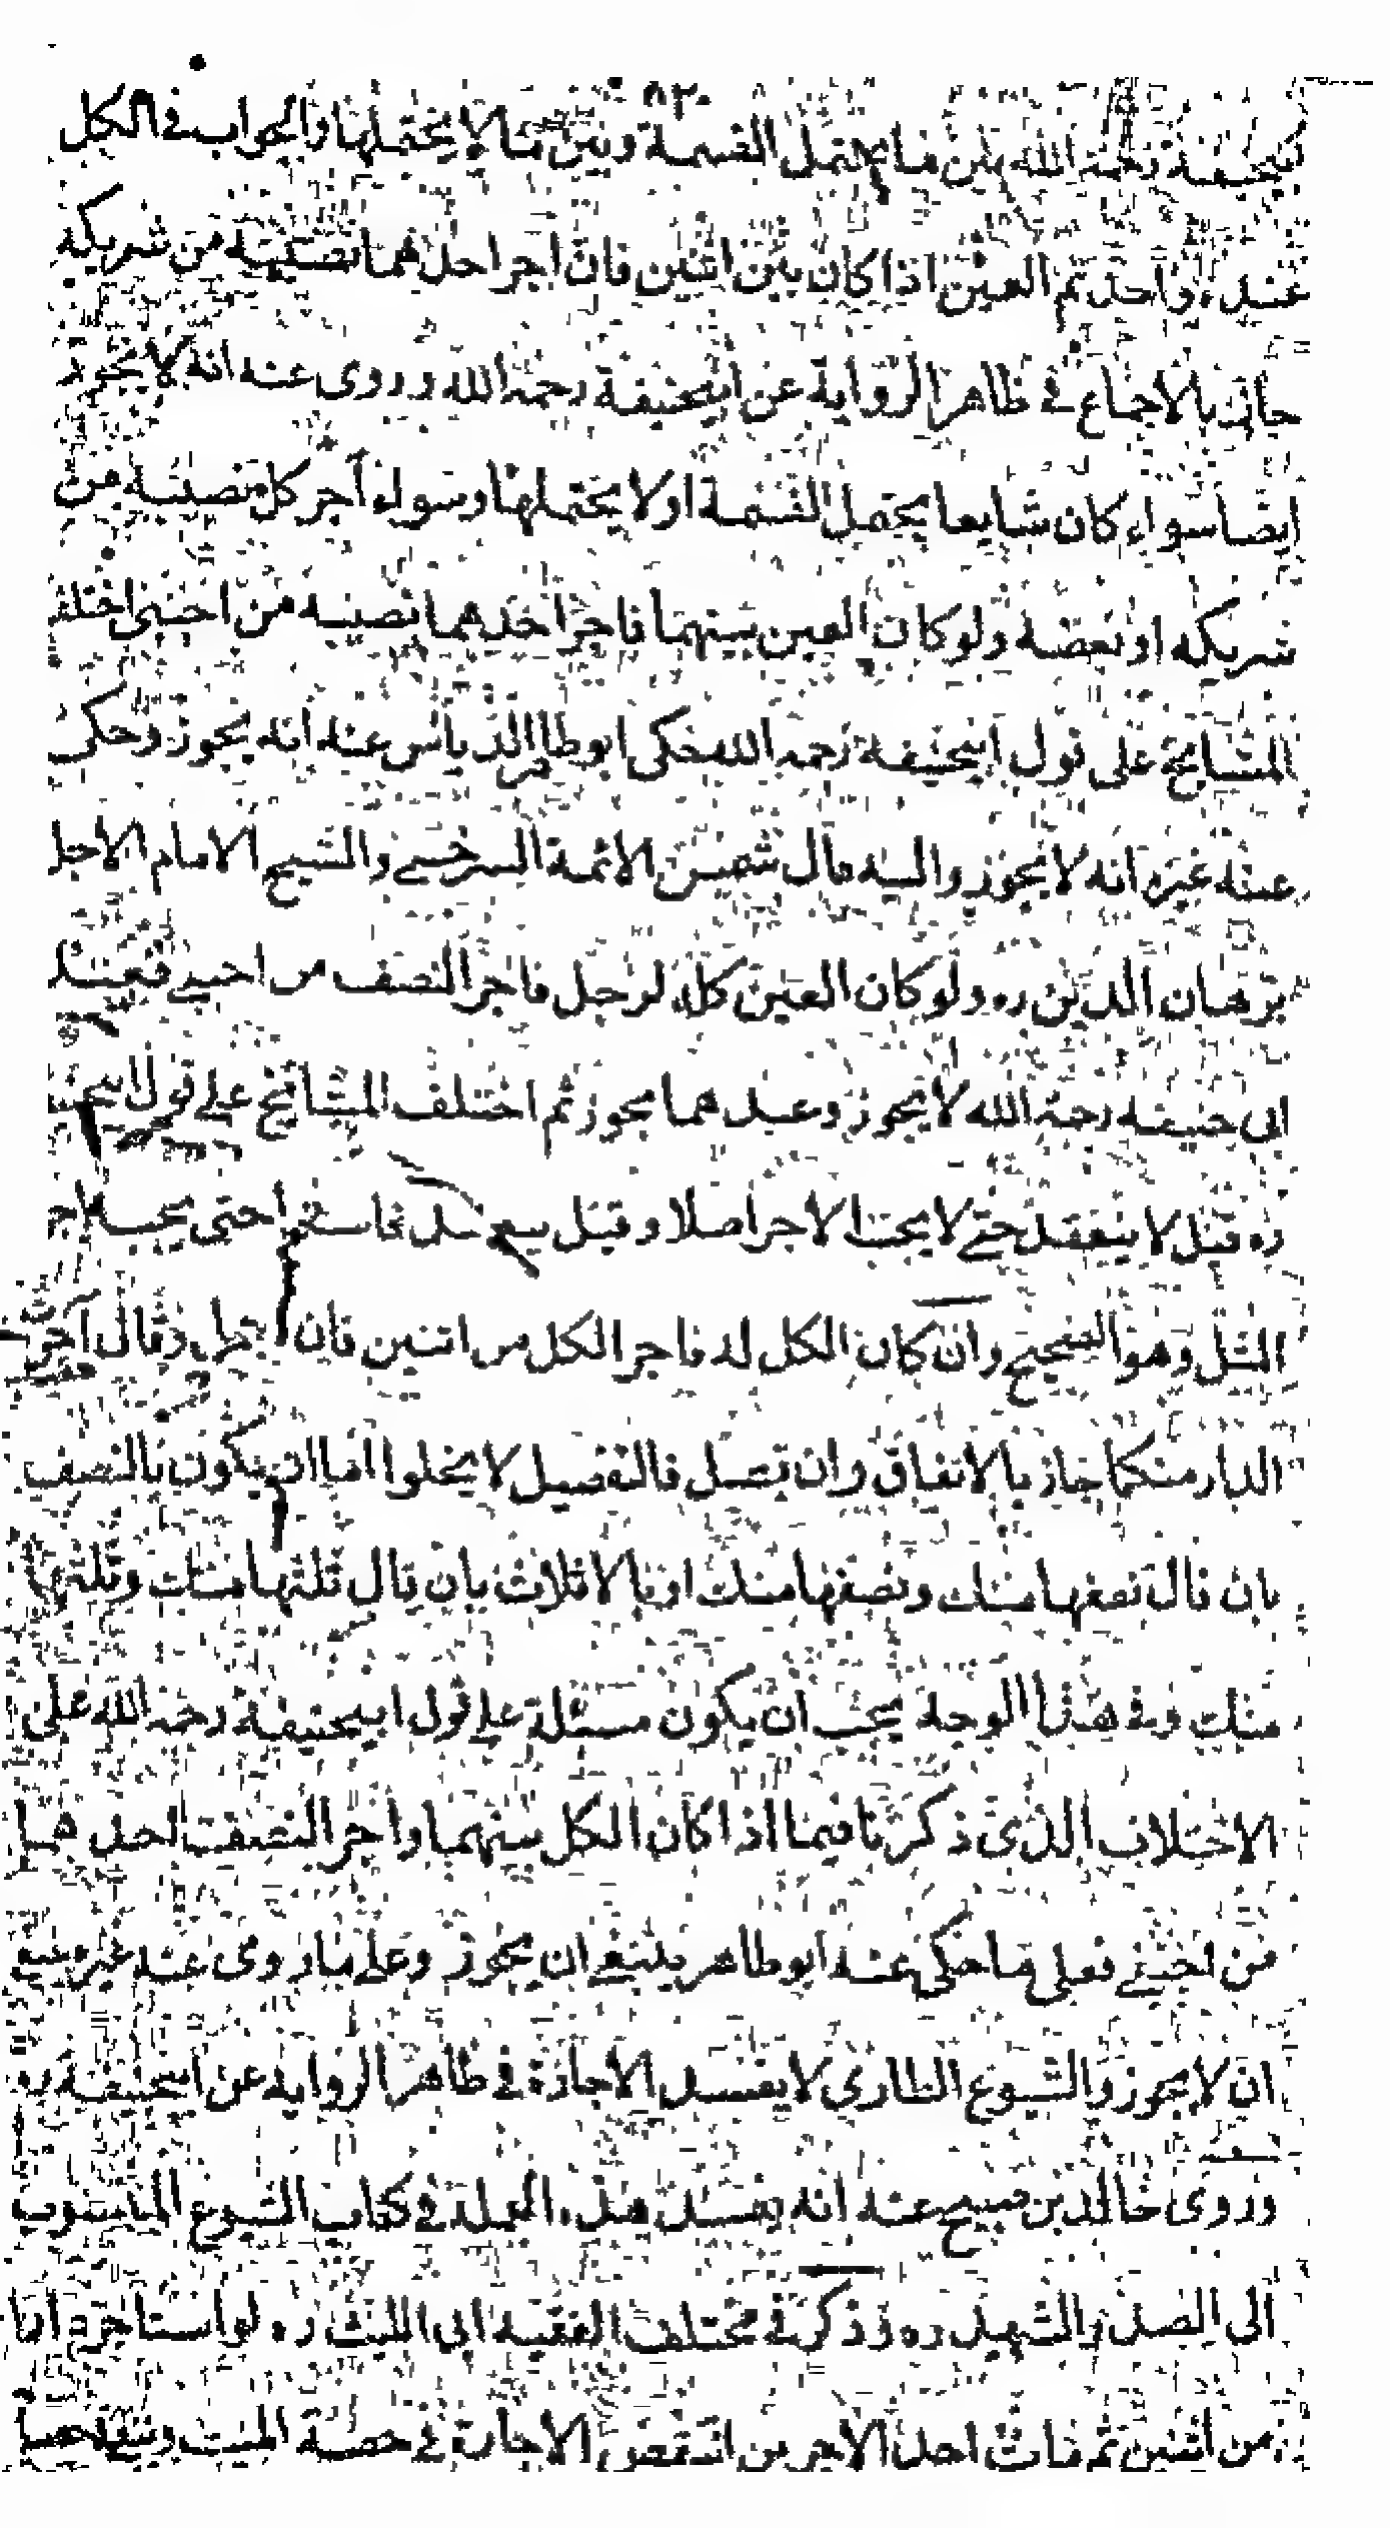 ابيحنيفة رحمه الله بين ما يحتمل القسمة وبين ما لا يحتملها والجواب في الكل
عنده واحد ثم العين اذا كان بين اثنين فان اجر احدهما نصيبه من شريكه
جائز بالاجماع في ظاهر الرواية عن ابيحنيفة رحمه الله وروى عنه انه لا يجوز
ايضا سواء كان شايعا يحتمل القسمة او لا يحتملها وسواء آجر كل نصيبه من
شريكه او بعضه ولو كان العين بينهما فاجر احدهما نصيبه من اجنبي اختلف
المشايخ على قول ابيحنيفة رحمه الله حكى ابو طاهر الدباس عنه انه يجوز وحكى
عنه غيره انه لا يجوز واليه مال شمس الائمة السرخسي والشيخ الامام الاجل
برهان الدين ره ولو كان العين كله لرجل فاجر النصف من اجنبي فعند
ابى حنيفه رحمة الله لا يجوز وعندهما يجوز ثم اختلف المشايخ على قول ابيحنيفة
ره قيل لا ينعقد حتى لا يجب الاجر اصلا وقيل ينعقد فاسدا حتى يجب اجر
المثل وهو الصحيح وان كان الكل له فاجر الكل من اثنين فان اجمل وقال آجرت
الدار منكما جاز بالاتفاق وان فصل فالتفصيل لا يخلوا اما ان يكون بالنصف
بان قال نصفها منك ونصفها منك او بالاثلاث بان قال ثلثها منك وثلثيها
منك وفي هذا الوجه يجب ان يكون مسئلة على قول ابيحنيفة رحمة الله على
الاختلاف الذى ذكرنا فيما اذا كان الكل بينهما واجر النصف احدهما
من اجنبي فعلى ما حكى عنه ابو طاهر ينبغي ان يجوز وعلى ما روى عنه غيره ينبغي
ان لا يجوز والشيوع الطارى لا يفسد الاجارة في ظاهر الرواية عن ابيحنيفة ره
وروى خالد بن صبيح عنه انه يفسد هذه الجملة في كتاب الشيوع المنسوب
الى الصدر الشهيد ره وذكر في مختلف الفقيه ابى الليث ره لو استأجر دارا
من اثنين ثم مات احد الاجرين انتقض الاجارة في حصة الميت